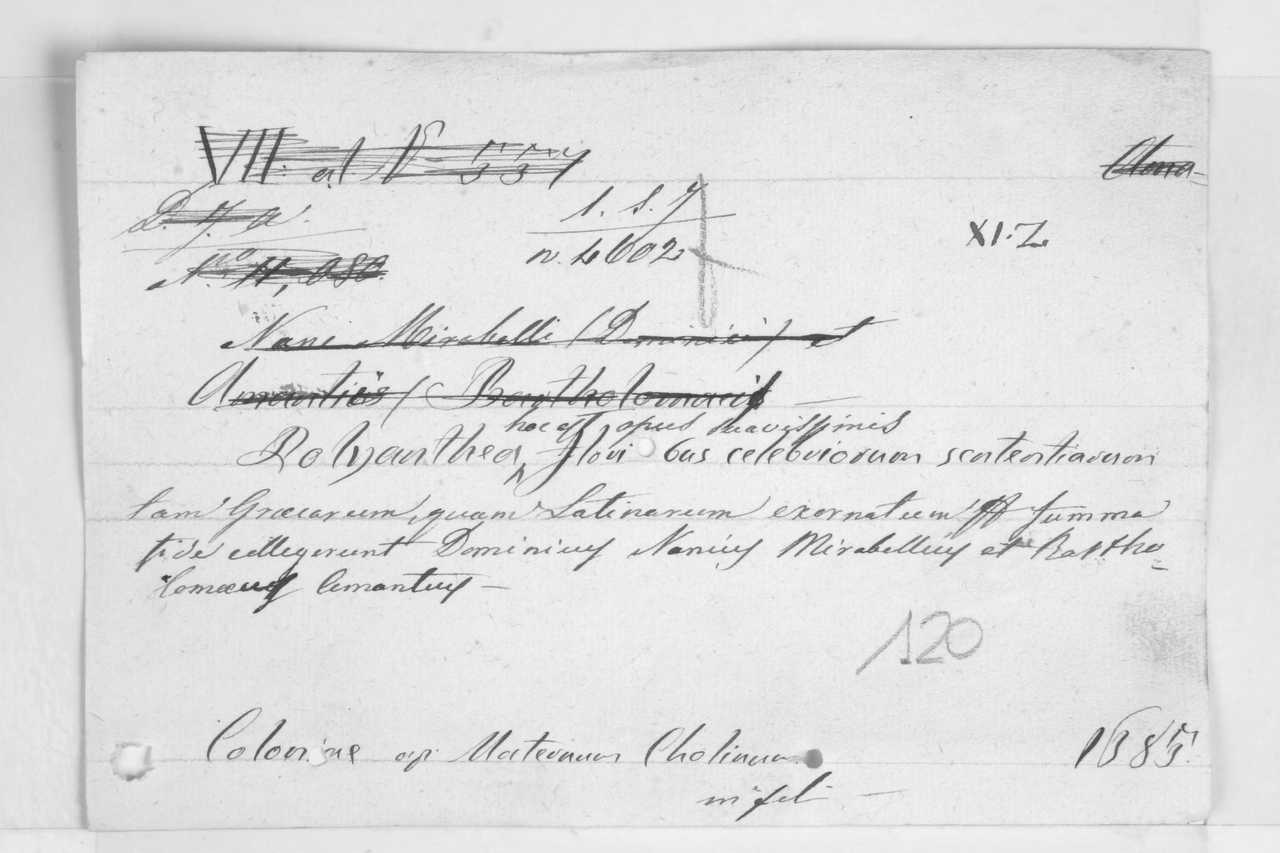 VII. al. N° 557
D. 7. a.
N.ro 11,080.
1. S. 7
n. 4602
XI. Z
Nani Mirabelli (Dominici) et
Amantiis (Bartholomaeis) —
hoc est opus suavissimis
Polyanthea, flori bus celebriorum sententiarum
tam Græcarum, quam Latinarum exornatum Summa
fide collegerunt Dominicus Nanius Mirabellius et Bartho
lomæus Amantius —
120
Coloniæ ap. Maternum Cholinum 1585.
in fol. —